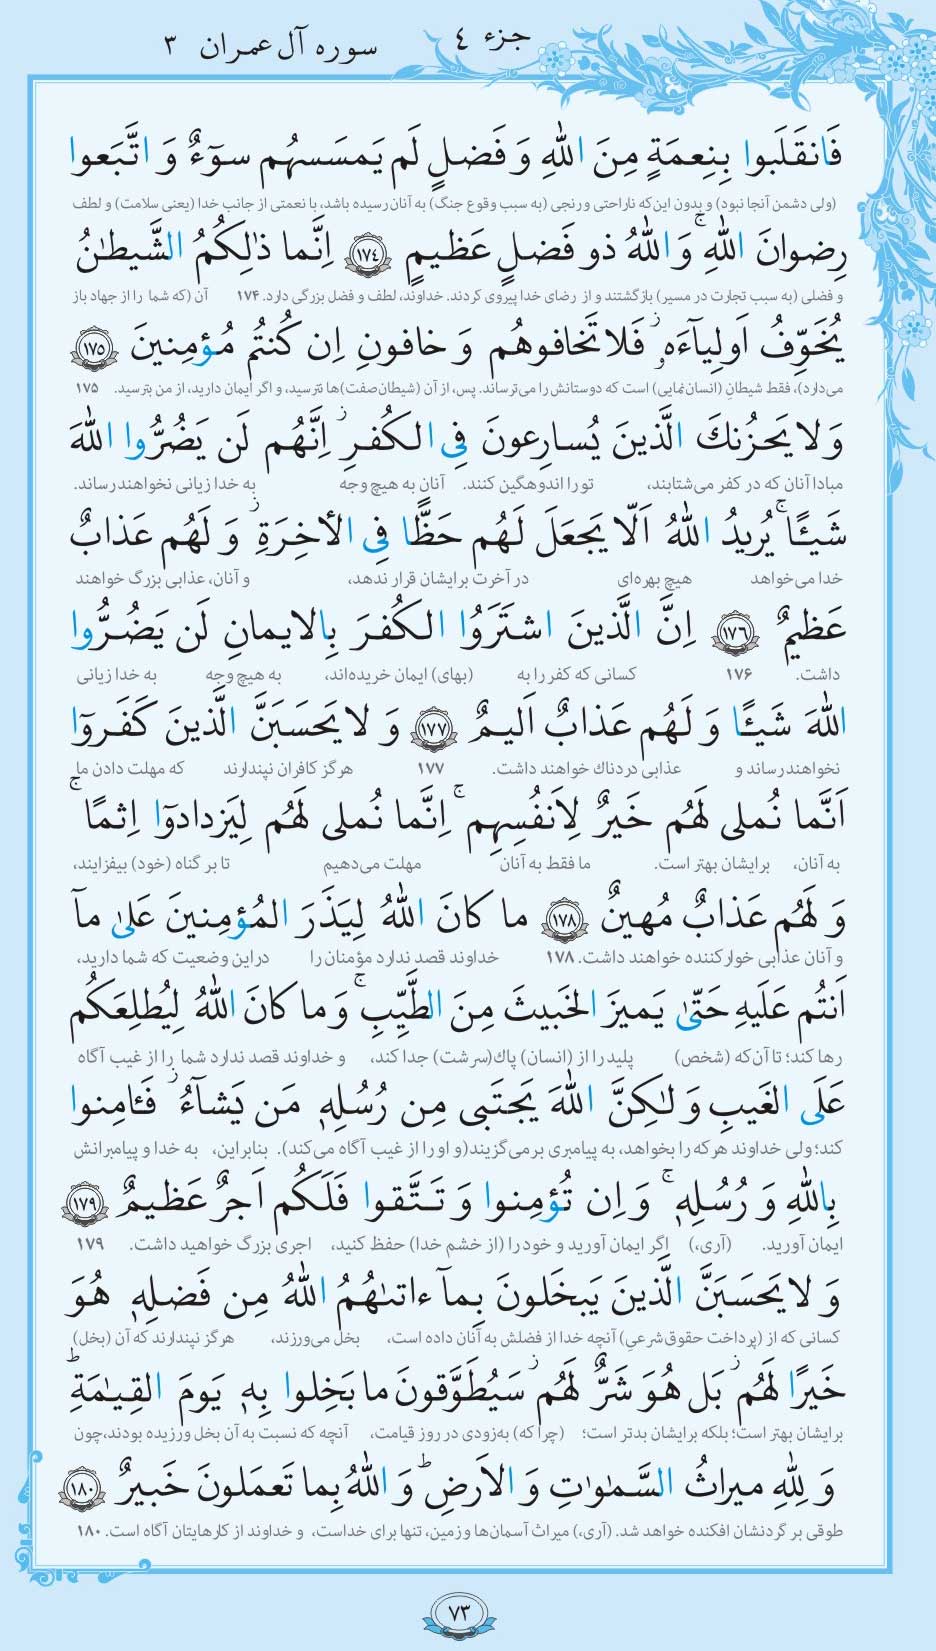 جزء ٤
سوره آل عمران ٣
فَانقَلَبوا بِنِعمَةٍ مِنَ اللهِ وَ فَضلٍ لَم يَمسَسهُم سوٓءٌ وَ اتَّبَعوا
(ولی دشمن آنجا نبود) و بدون این‌که ناراحتی و رنجی (به سبب وقوع جنگ) به آنان رسیده باشد، با نعمتی از جانب خدا (یعنی سلامت) و لطف
رِضوانَ اللهِ ۚ وَ اللهُ ذو فَضلٍ عَظيمٍ ﴿١٧٤﴾ اِنَّما ذٰلِكُمُ الشَّيطٰنُ
و فضلی (به سبب تجارت در مسیر) بازگشتند و از رضای خدا پیروی کردند. خداوند، لطف و فضل بزرگی دارد. ۱۷۴ آن (که شما را از جهاد باز
يُخَوِّفُ اَولِيآءَهو ز فَلا تَخافوهُم وَ خافونِ اِن كُنتُم مُؤمِنينَ ﴿١٧٥﴾
می‌دارد)، فقط شیطانِ (انسان‌نمایی) است که دوستانش را می‌ترساند. پس، از آن (شیطان‌صفت)ها نترسید، و اگر ایمان دارید، از من بترسید. ۱۷۵
وَ لا يَحزُنكَ الَّذينَ يُسارِعونَ فِى الكُفرِ ز اِنَّهُم لَن يَضُرُّوا اللهَ
مبادا آنان که در کفر می‌شتابند، تو را اندوهگین کنند. آنان به هیچ وجه به خدا زیانی نخواهند رساند.
شَيـًٔا ۚ يُريدُ اللهُ اَلّا يَجعَلَ لَهُم حَظًّا فِى الأخِرَةِ ز وَ لَهُم عَذابٌ
خدا می‌خواهد هیچ بهره‌ای در آخرت برایشان قرار ندهد، و آنان، عذابی بزرگ خواهند
عَظيمٌ ﴿١٧٦﴾ اِنَّ الَّذينَ اشتَرَوُا الكُفرَ بِالايمانِ لَن يَضُرُّوا
داشت. ۱۷۶ کسانی که کفر را به (بهای) ایمان خریده‌اند، به هیچ وجه به خدا زیانی
اللهَ شَيـًٔا وَ لَهُم عَذابٌ اَليمٌ ﴿١٧٧﴾ وَ لا يَحسَبَنَّ الَّذينَ كَفَروٓا
نخواهند رساند و عذابی دردناك خواهند داشت. ۱۷۷ هرگز کافران نپندارند که مهلت دادن ما
اَنَّما نُملى لَهُم خَيرٌ لِاَنفُسِهِم ۚ اِنَّما نُملى لَهُم لِيَزدادوٓا اِثمًا ۚ
به آنان، برایشان بهتر است. ما فقط به آنان مهلت می‌دهیم تا بر گناه (خود) بیفزایند،
وَ لَهُم عَذابٌ مُهينٌ ﴿١٧٨﴾ ما كانَ اللهُ لِيَذَرَ المُؤمِنينَ عَلىٰ مآ
و آنان عذابی خوارکننده خواهند داشت. ۱۷۸ خداوند قصد ندارد مؤمنان را در این وضعیت که شما دارید،
اَنتُم عَلَيهِ حَتّىٰ يَميزَ الخَبيثَ مِنَ الطَّيِّبِ ۚ وَ ما كانَ اللهُ لِيُطلِعَكُم
رها کند؛ تا آن‌که (شخص) پلید را از (انسان) پاك(سرشت) جدا کند، و خداوند قصد ندارد شما را از غیب آگاه
عَلَى الغَيبِ وَ لٰكِنَّ اللهَ يَجتَبى مِن رُسُلِهٖ مَن يَشآءُ ز فَـٔامِنوا
کند؛ ولی خداوند هرکه را بخواهد، به پیامبری برمی‌گزیند(و او را از غیب آگاه می‌کند). بنابراین، به خدا و پیامبرانش
بِاللهِ وَ رُسُلِهٖ ۚ وَ اِن تُؤمِنوا وَ تَتَّقوا فَلَكُم اَجرٌ عَظيمٌ ﴿١٧٩﴾
ایمان آورید. (آری،) اگر ایمان آورید و خود را (از خشم خدا) حفظ کنید، اجری بزرگ خواهید داشت. ۱۷۹
وَ لا يَحسَبَنَّ الَّذينَ يَبخَلونَ بِمآ ءاتىٰهُمُ اللهُ مِن فَضلِهٖ هُوَ
کسانی که از (پرداخت حقوق شرعیِ) آنچه خدا از فضلش به آنان داده است، بخل می‌ورزند، هرگز نپندارند که آن (بخل)
خَيرًا لَهُم ز بَل هُوَ شَرٌّ لَهُم ز سَيُطَوَّقونَ ما بَخِلوا بِهٖ يَومَ القِيٰمَةِ ط
برایشان بهتر است؛ بلکه برایشان بدتر است؛ (چرا که) به‌زودی در روز قیامت، آنچه که نسبت به آن بخل ورزیده بودند،چون
وَ لِلّٰهِ ميراثُ السَّمٰوٰتِ وَ الاَرضِ ط وَ اللهُ بِما تَعمَلونَ خَبيرٌ ﴿١٨٠﴾
طوقی بر گردنشان افکنده خواهد شد. (آری،) میراث آسمان‌ها و زمین، تنها برای خداست، و خداوند از کارهایتان آگاه است. ۱۸۰
٧٣